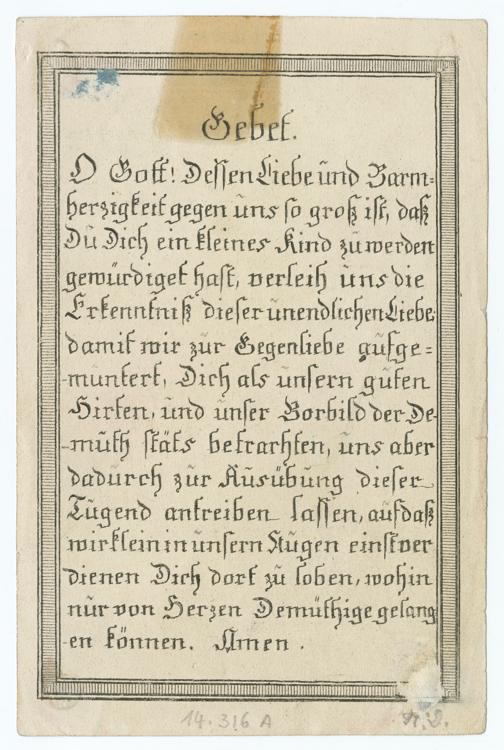 Gebet.
O Gott! Dessen Liebe und Barm=
herzigkeit gegen uns so groß ist, daß
Du Dich ein kleines Kind zu werden
gewürdiget hast, verleih uns die
Erkenntniß dieser unendlichen Liebe
damit wir zur Gegenliebe aufge=
muntert, Dich als unsern guten
Hirten, und unser Vorbild der De=
muth stäts betrachten, uns aber
dadurch zur Ausübung dieser
Tugend antreiben lassen, auf daß
wir klein in unsern Augen einst ver
dienen Dich dort zu loben, wohin
nur von Herzen Demüthige gelang
en können. Amen.
14.316 A